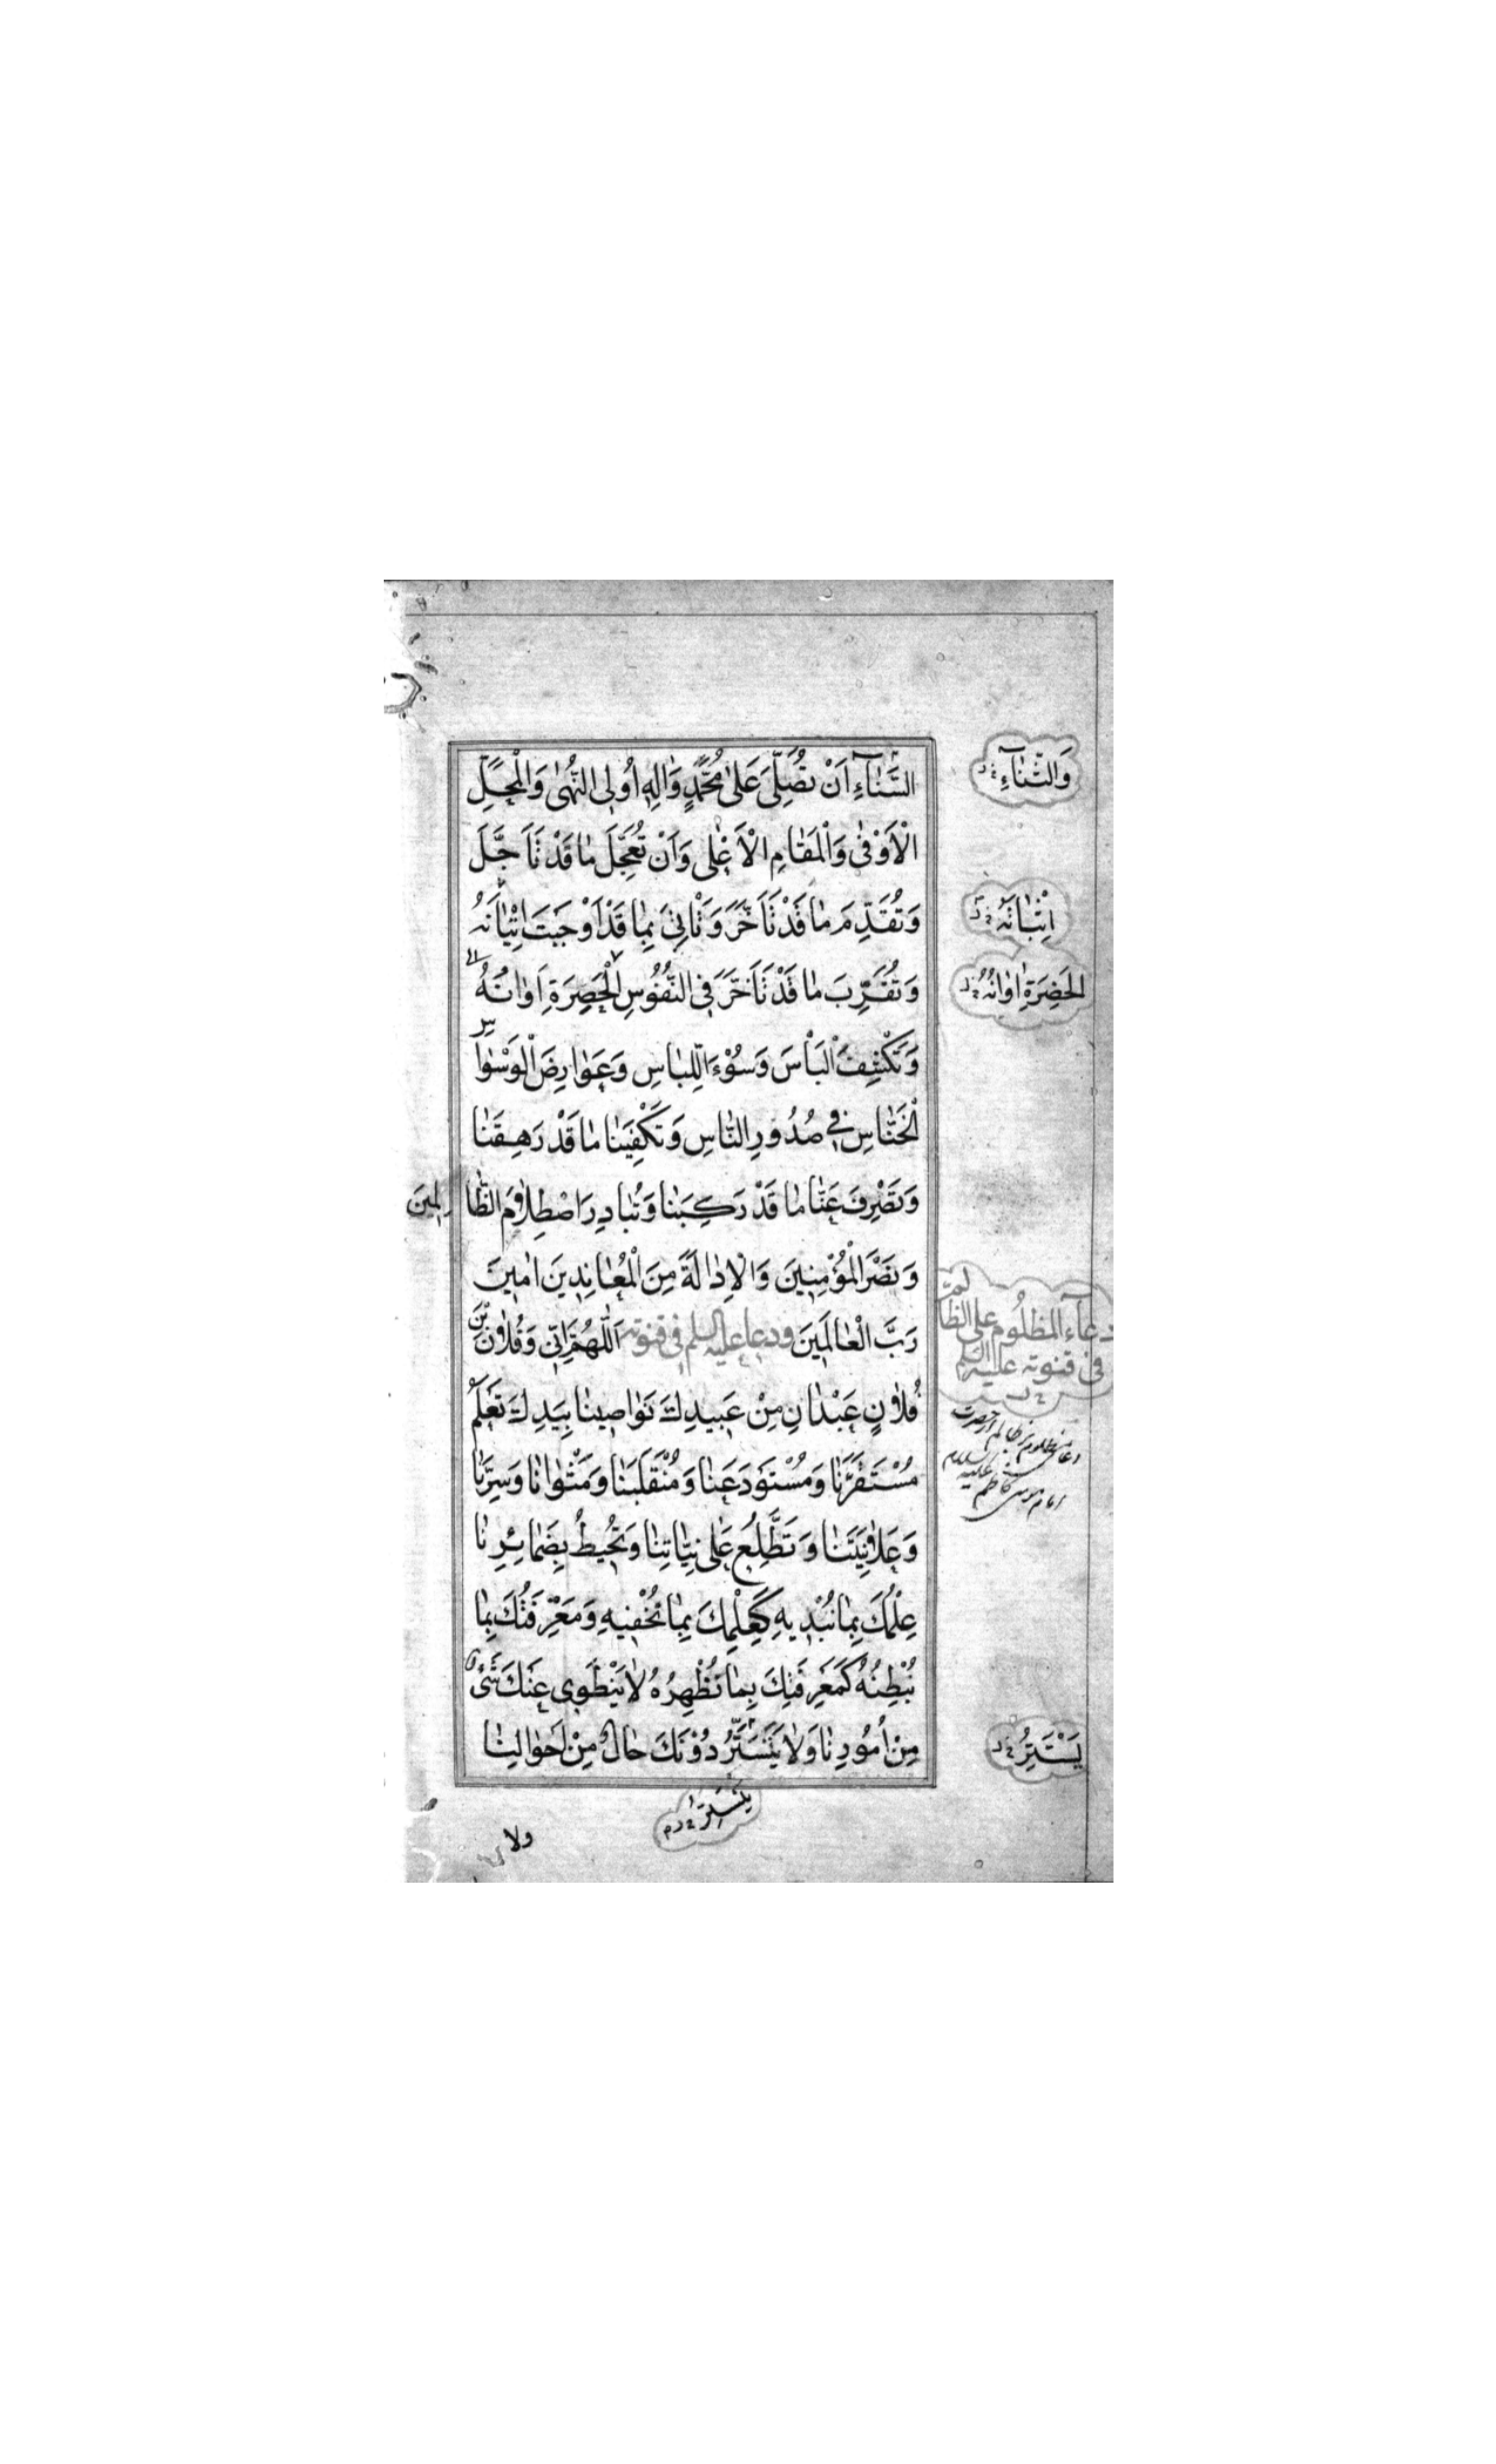 السَّنَاءِ اَنْ تُصَلِّیَ عَلٰی مُحَمَّدٍ وَاٰلِهِ اُولِی النُّهٰی وَالْمَحَلِّ
الْاَوْفٰی وَالْمَقٰامِ الْاَعْلٰی وَاَنْ تُعَجِّلَ مٰا قَدْ تَاَجَّلَ
وَتُقَدِّمَ مٰا قَدْ تَاَخَّرَ وَتَاْتِیَ بِمٰا قَدْ اَوْجَبْتَ اِتْیٰانَهُ
وَتُقَرِّبَ مٰا قَدْ تَاَخَّرَ فِی النُّفُوسِ الْحَصِرَةِ اَوٰانُهُ
وَتَكْشِفَ الْبَاْسَ وَسُوْءَ اللِّبٰاسِ وَعَوٰارِضَ الْوَسْوٰاسِ
الْخَنّٰاسِ فِی صُدُورِ النّٰاسِ وَتَكْفِیَنٰا مٰا قَدْ رَهِقَنٰا
وَتَصْرِفَ عَنّٰا مٰا قَدْ رَكِبَنٰا وَتُبٰادِرَ اصْطِلٰامَ الظّٰالِمِینَ
وَنَصْرَ الْمُؤْمِنِینَ وَالْاِدٰالَةَ مِنَ الْمُعٰانِدِینَ اٰمِینَ
رَبَّ الْعٰالَمِینَ ودعا علیه السلم فی قنوته اَللّٰهُمَّ اِنِّی وَفُلٰانَ بْنَ
فُلٰانٍ عَبْدٰانِ مِنْ عَبِیدِكَ نَوٰاصِینٰا بِیَدِكَ تَعْلَمُ
مُسْتَقَرَّنٰا وَمُسْتَوْدَعَنٰا وَمُنْقَلَبَنٰا وَمَثْوٰانٰا وَسِرَّنٰا
وَعَلٰانِیَتَنٰا وَتَطَّلِعُ عَلٰی نِیّٰاتِنٰا وَتُحِیطُ بِضَمٰائِرِنٰا
عِلْمُكَ بِمٰا نُبْدِیهِ كَعِلْمِكَ بِمٰا نُخْفِیهِ وَمَعْرِفَتُكَ بِمٰا
نُبْطِنُهُ كَمَعْرِفَتِكَ بِمٰا نُظْهِرُهُ لٰا یَنْطَوِی عَنْكَ شَیْءٌ
مِنْ اُمُورِنٰا وَلٰا یَتَسَتَّرُ دُوْنَكَ حٰالٌ مِنْ اَحْوٰالِنٰا
وَالثَّنٰاءِ
اِتْیٰانَهُ
الحَضِرَةِ اَوٰانُهُ
دعآء المظلُوم علی الظالم
فی قنوته علیه السلم
دعا مظلوم بر ظالم از حضرت
امام موسی كاظم علیه السلام
یَسْتَتِرُ
ولا